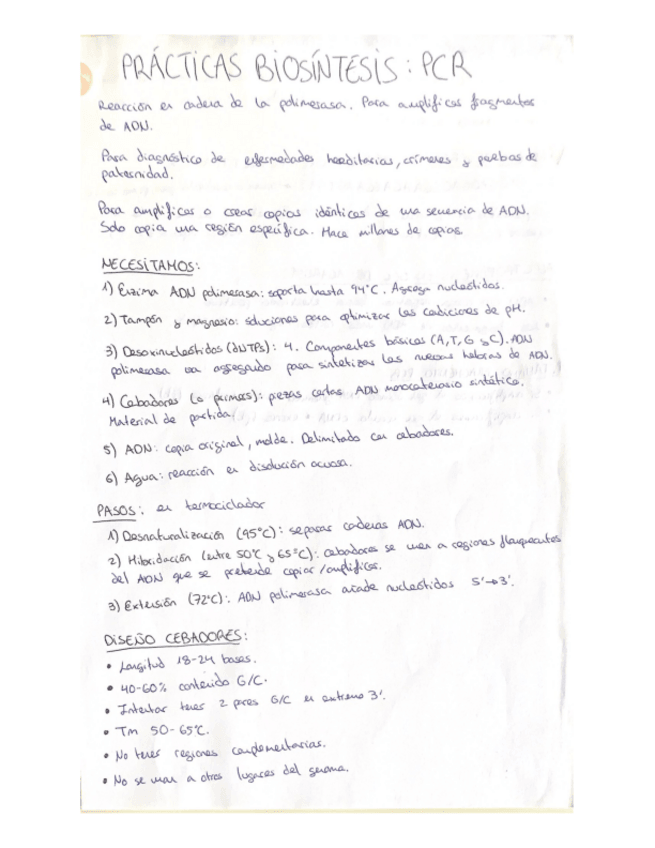 PRÁCTICAS BIOSÍNTESIS: PCR
Reacción en cadena de la polimerasa. Para amplificar fragmentos
de ADN.
Para diagnóstico de enfermedades hereditarias, crímenes y pruebas de
paternidad.
Para amplificar o crear copias idénticas de una secuencia de ADN.
Solo copia una región específica. Hace millones de copias.
NECESITAMOS:
1) Enzima ADN polimerasa: soporta hasta 94°C. Agrega nucleótidos.
2) Tampón y magnesio: soluciones para optimizar las condiciones de pH.
3) Desoxinucleótidos (dNTPs): 4. Componentes básicos (A,T,G y C). ADN
polimerasa va agregando para sintetizar las nuevas hebras de ADN.
4) Cebadores (o primers): piezas cortas ADN monocatenario sintético.
Material de partida.
5) ADN: copia original, molde. Delimitado con cebadores.
6) Agua: reacción en disolución acuosa.
PASOS: en termociclador
1) Desnaturalización (95°C): separar cadenas ADN.
2) Hibridación (entre 50°C y 65°C): cebadores se unen a regiones flanqueantes
del ADN que se pretende copiar/amplificar.
3) Extensión (72°C): ADN polimerasa añade nucleótidos 5'→3'.
DISEÑO CEBADORES:
• Longitud 18-24 bases.
• 40-60% contenido G/C.
• Intentar tener 2 pares G/C en extremo 3'.
• Tm 50-65°C.
• No tener regiones complementarias.
• No se unan a otros lugares del genoma.